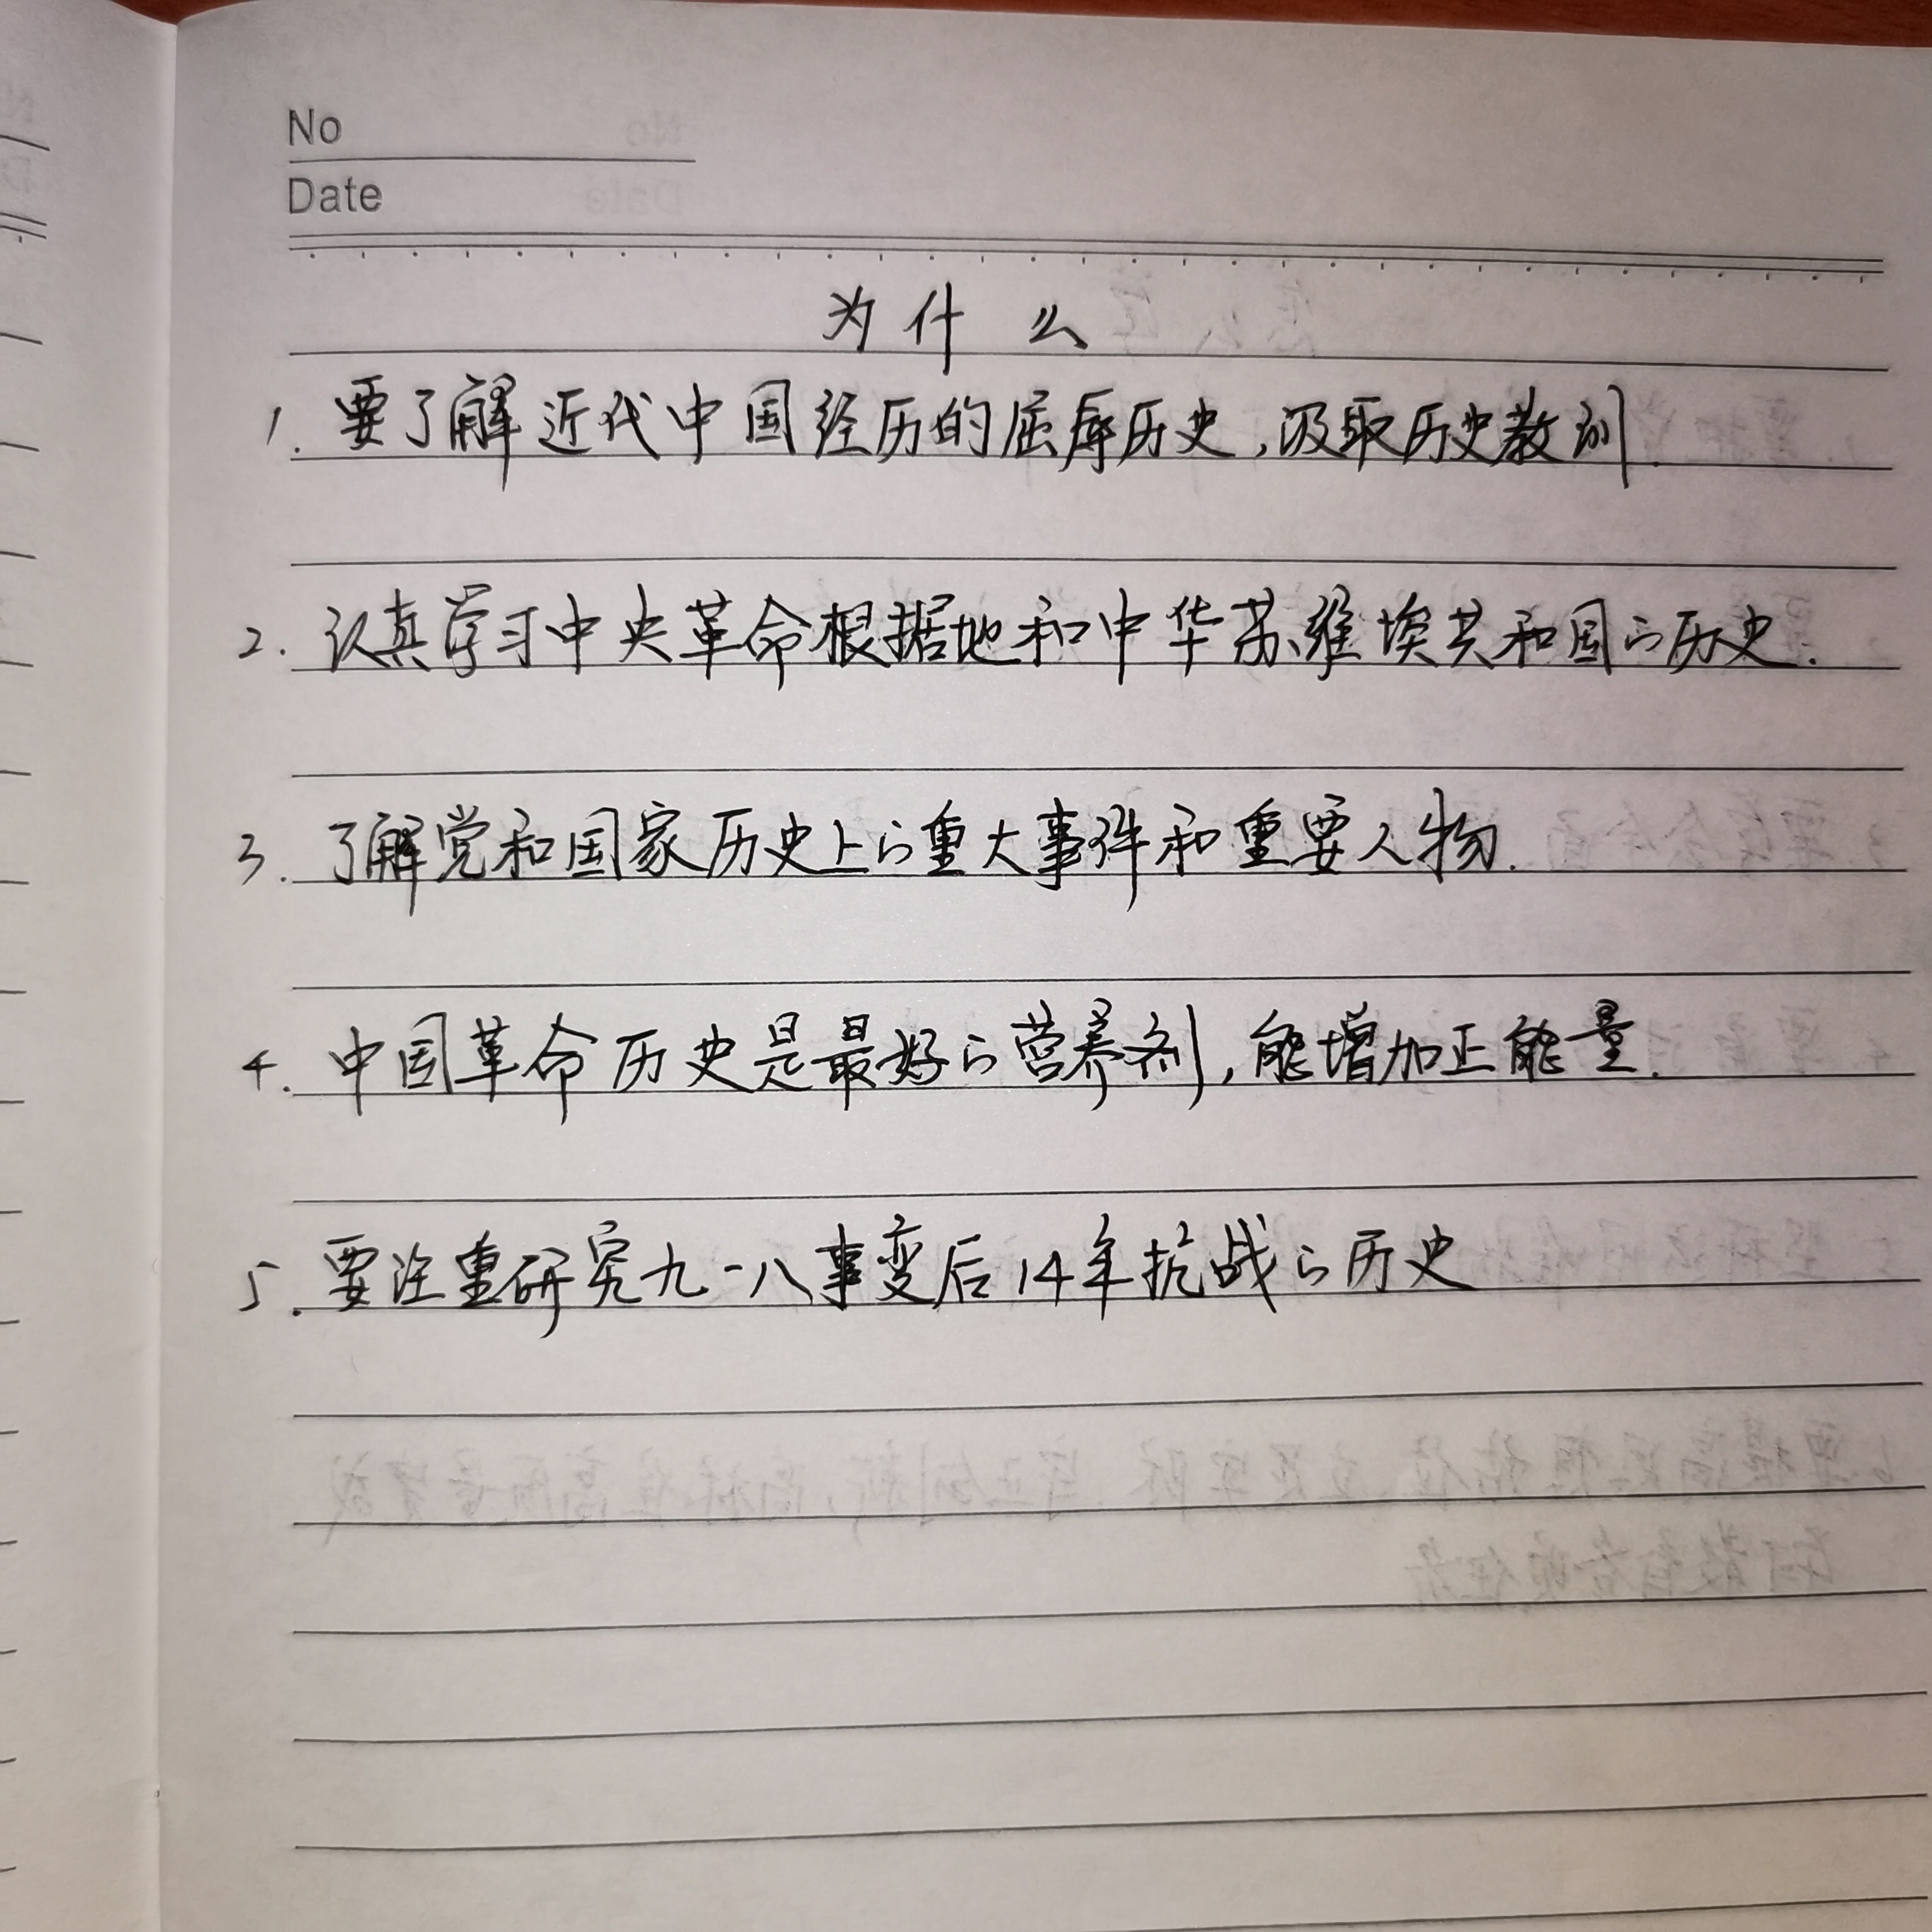 No
Date
为什么
1. 要了解近代中国经历的屈辱历史,汲取历史教训.
2. 认真学习中央革命根据地和中华苏维埃共和国的历史.
3. 了解党和国家历史上的重大事件和重要人物.
4. 中国革命历史是最好的营养剂,能增加正能量.
5. 要注重研究九一八事变后14年抗战的历史